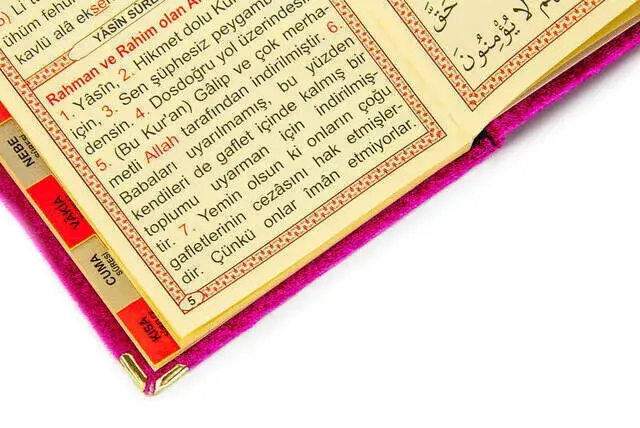 ühüm fehüm
kavlü alâ ekse
YÂSÎN SÛRE
Rahman ve Rahim olan Al
1. Yâsîn, 2. Hikmet dolu Kur
için, 3. Sen şüphesiz peygamb
densin. 4. Dosdoğru yol üzerindesi
5. (Bu Kur'an) Gâlip ve çok merha-
metli Allah tarafından indirilmiştir. 6.
Babaları uyarılmamış, bu yüzden
kendileri de gaflet içinde kalmış bir
toplumu uyarman için indirilmiş-
tir. 7. Yemin olsun ki onların çoğu
gafletlerinin cezâsını hak etmişler-
dir. Çünkü onlar îmân etmiyorlar.
5
لَا يُؤْمِنُونَ
NEBE
SÛRESİ
VÂKIA
CUMA
SÛRESİ
KISA